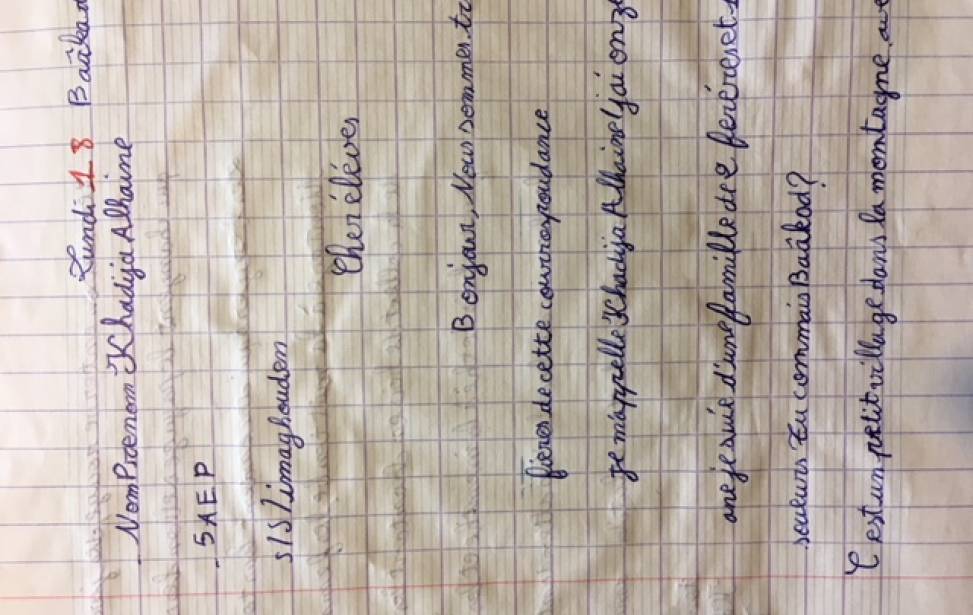 Lundi 18 Baâkad
Nom Prenom Khadija Alhaine
5AEP
S/S/imaghouden
Cher éléves
Bonjour, Nous sommes tr
fieres de cette courrespoudance
je m'appelle Khadija Alhaine j'ai onz
ane je suie d'une famille de 2 feréres et
souleurs Tu connais Baâkod?
C'est un petit village dans la montagne, ave